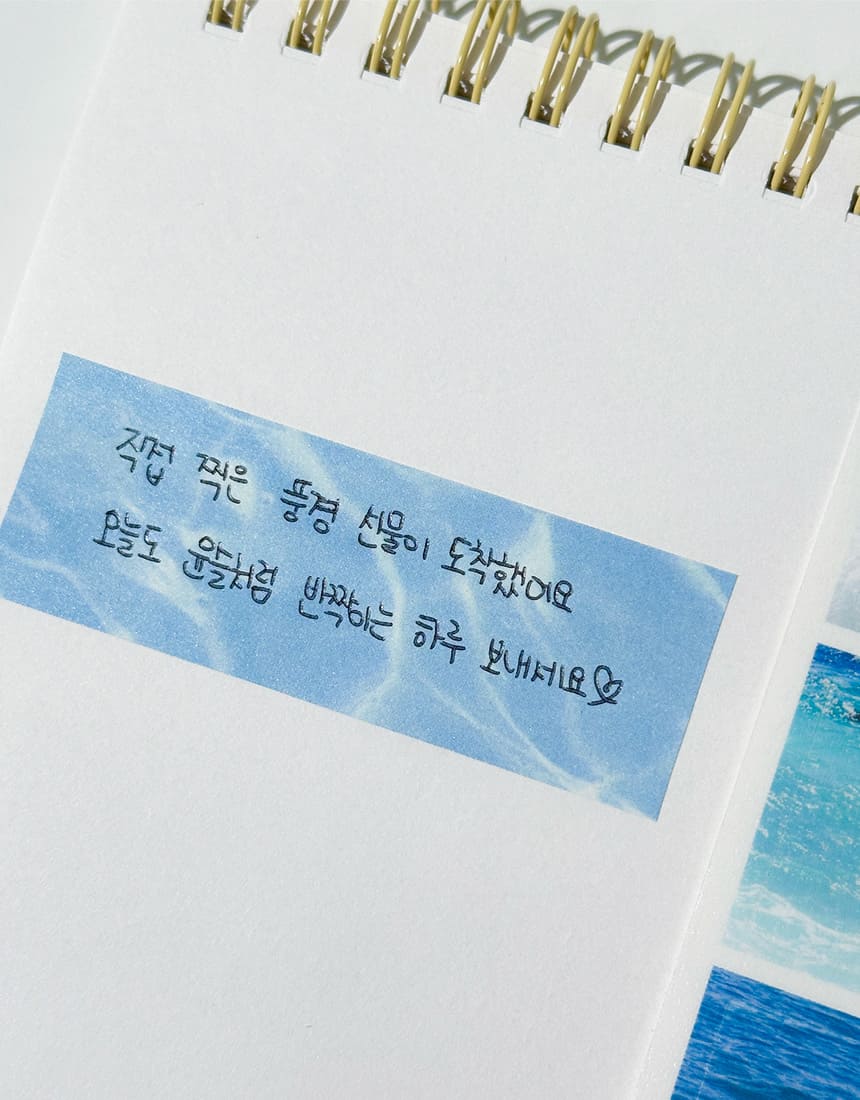 직접 찍은 풍경 선물이 도착했어요
오늘도 윤슬처럼 반짝이는 하루 보내세요♡